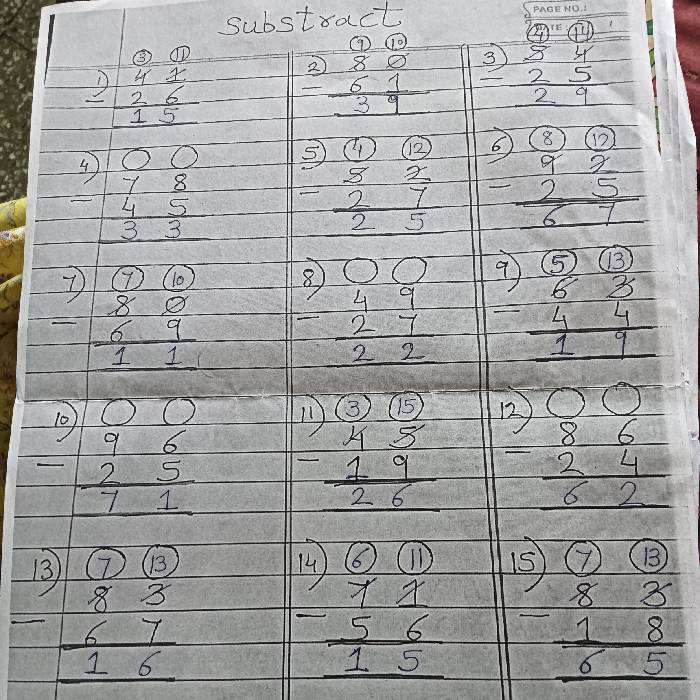 Substract
PAGE NO.:
DATE
1) 3 11
4 1
- 2 6
1 5
2) 9 10
8 0
- 6 1
3 9
3) 4 14
5 4
- 2 5
2 9
4)
7 8
- 4 5
3 3
5) 4 12
5 2
- 2 7
2 5
6) 8 12
9 2
- 2 5
6 7
7) 7 10
8 0
- 6 9
1 1
8)
4 9
- 2 7
2 2
9) 5 13
6 3
- 4 4
1 9
10)
9 6
- 2 5
7 1
11) 3 15
4 5
- 1 9
2 6
12)
8 6
- 2 4
6 2
13) 7 13
8 3
- 6 7
1 6
14) 6 11
7 1
- 5 6
1 5
15) 7 13
8 3
- 1 8
6 5